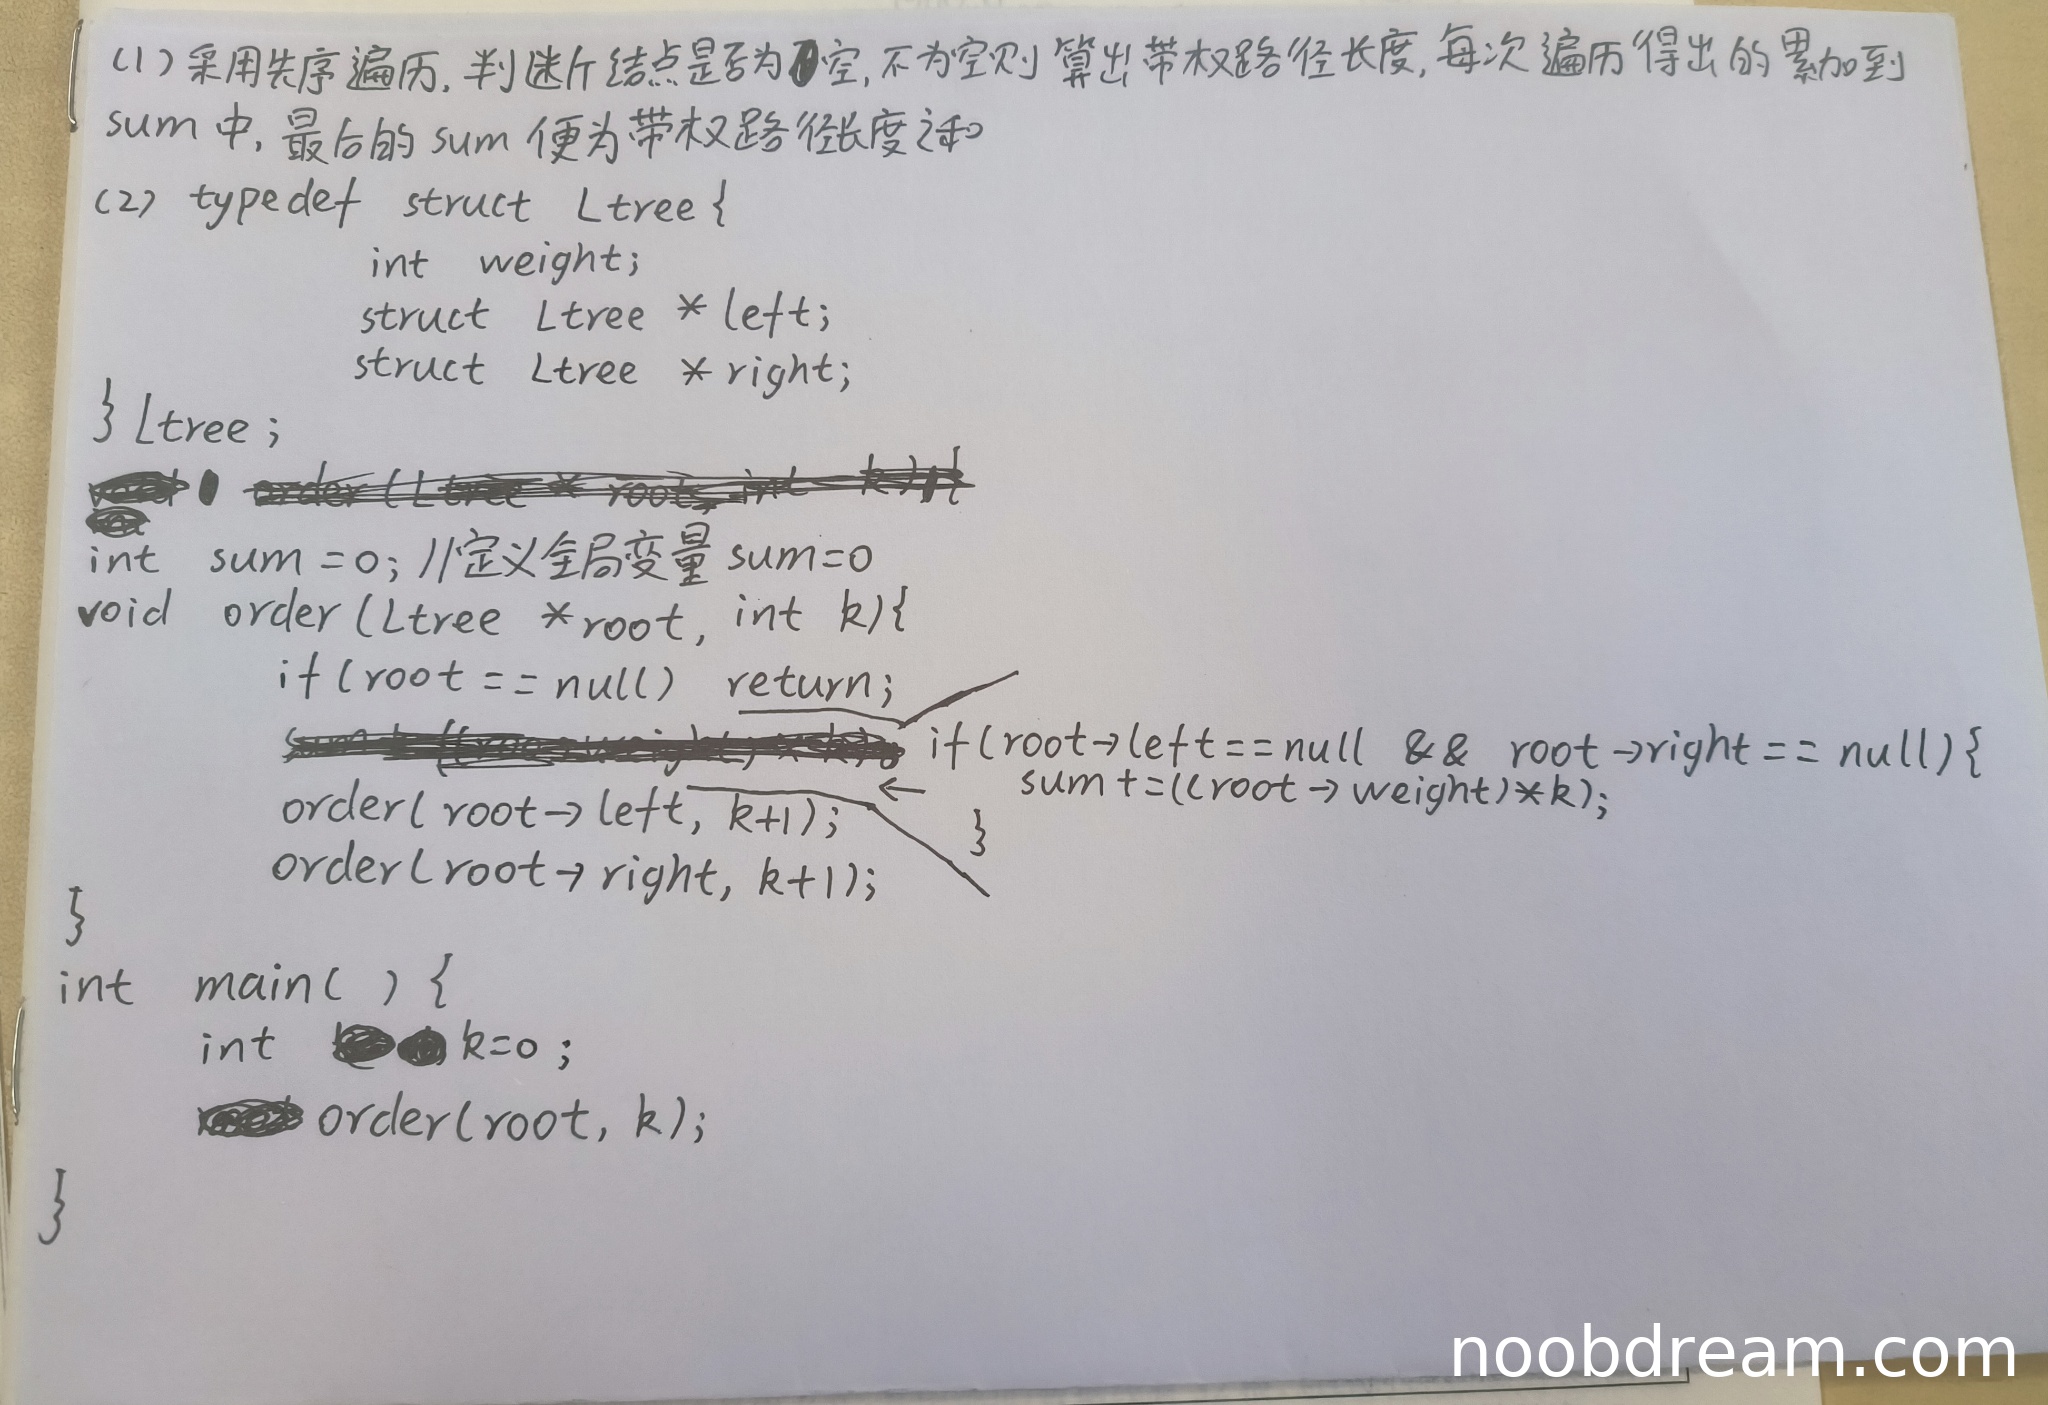 (1)采用先序遍历,判断结点是否为空,不为空则算出带权路径长度,每次遍历得出的累加到
sum中,最后的sum便为带权路径长度之和
(2) typedef struct Ltree{
int weight;
struct Ltree * left;
struct Ltree * right;
} Ltree;
order (Ltree * root, int k){
int sum = 0; //定义全局变量 sum=0
void order (Ltree *root, int k){
if(root == null) return;
if(root→left==null && root→right== null){
sum+=((root→weight)*k);
}
order(root→left, k+1);
order(root→right, k+1);
}
int main( ) {
int k=0;
order(root, k);
}
noobdream.com